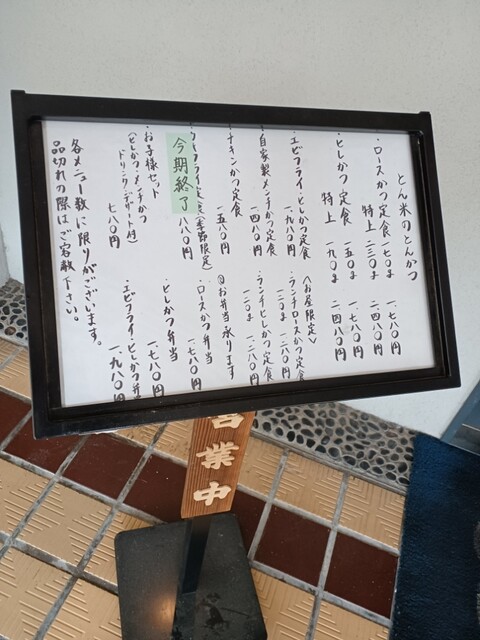 とん米のとんかつ
・ロースかつ定食 一七〇g 一、七八〇円
特上 二三〇g 二、四八〇円
・ヒレかつ定食 一五〇g 一、七八〇円
特上 一九〇g 二、四八〇円
・エビフライ・ヒレかつ定食 一、九八〇円
・自家製メンチかつ定食 一、四八〇円
・チキンかつ定食 一、五八〇円
定食(季節限定) 八八〇円
今期終了
・お子様セット
(ヒレかつ・メンチかつ
ドリンク・デザート付)
七八〇円
〈お昼限定〉
・ランチロースかつ定食
一二〇g 一、二八〇円
・ランチヒレかつ定食
一二〇g 一、二八〇円
◎お弁当承ります
・ロースかつ弁当
一、七八〇円
・ヒレかつ弁当
一、七八〇円
・エビフライ・ヒレかつ弁当
一、九八〇円
各メニュー数に限りがございます。
品切れの際はご容赦下さい。
営業中